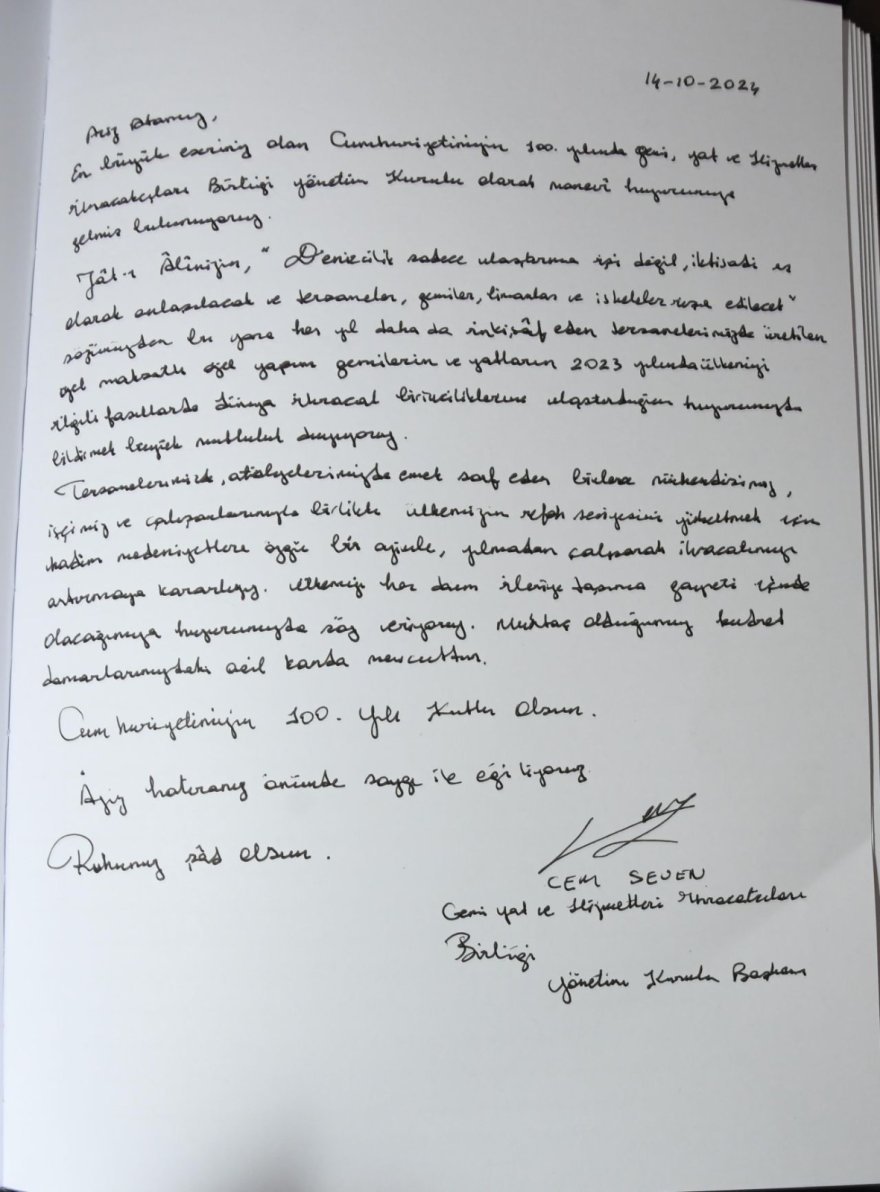 14-10-2024
Aziz Atamız,
En büyük eseriniz olan Cumhuriyetimizin 100. yılında gemi, yat ve Hizmetleri
ihracatçıları Birliği yönetim Kurulu olarak manevî huzurunuza
gelmiş bulunuyoruz.
Zât-ı Âlinizin, " Denizcilik sadece ulaştırma işi değil, iktisadi iş
olarak anlaşılacak ve tersaneler, gemiler, limanlar ve iskeleler inşa edilecek"
sözünüzden bu yana her yıl daha da inkişâf eden tersanelerimizde üretilen
özel maksatlı özel yapım gemilerin ve yatların 2023 yılında ülkemizi
ilgili fasıllarda Dünya ihracat birinciliklerine ulaştırdığını huzurunuzda
bildirmek büyük mutluluk duyuyoruz.
Tersanelerimizde, atölyelerimizde emek sarf eden binlerce mühendisimiz,
işçimiz ve çalışanlarımızla birlikte ülkemizin refah seviyesini yükseltmek için
kadim medeniyetlere özgü bir azimle, yılmadan çalışarak ihracatımızı
artırmaya kararlıyız. Ülkemizi her daim ileriye taşıma gayreti içinde
olacağımıza huzurunuzda söz veriyoruz. Muhtaç olduğumuz kudret
damarlarımızdaki asil kanda mevcuttur.
Cumhuriyetimizin 100. yılı Kutlu Olsun.
Aziz hatıranız önünde saygı ile eğiliyoruz
Ruhunuz şâd olsun.
CEM SEVEN
Gemi yat ve Hizmetleri İhracatçıları
Birliği
Yönetim Kurulu Başkanı